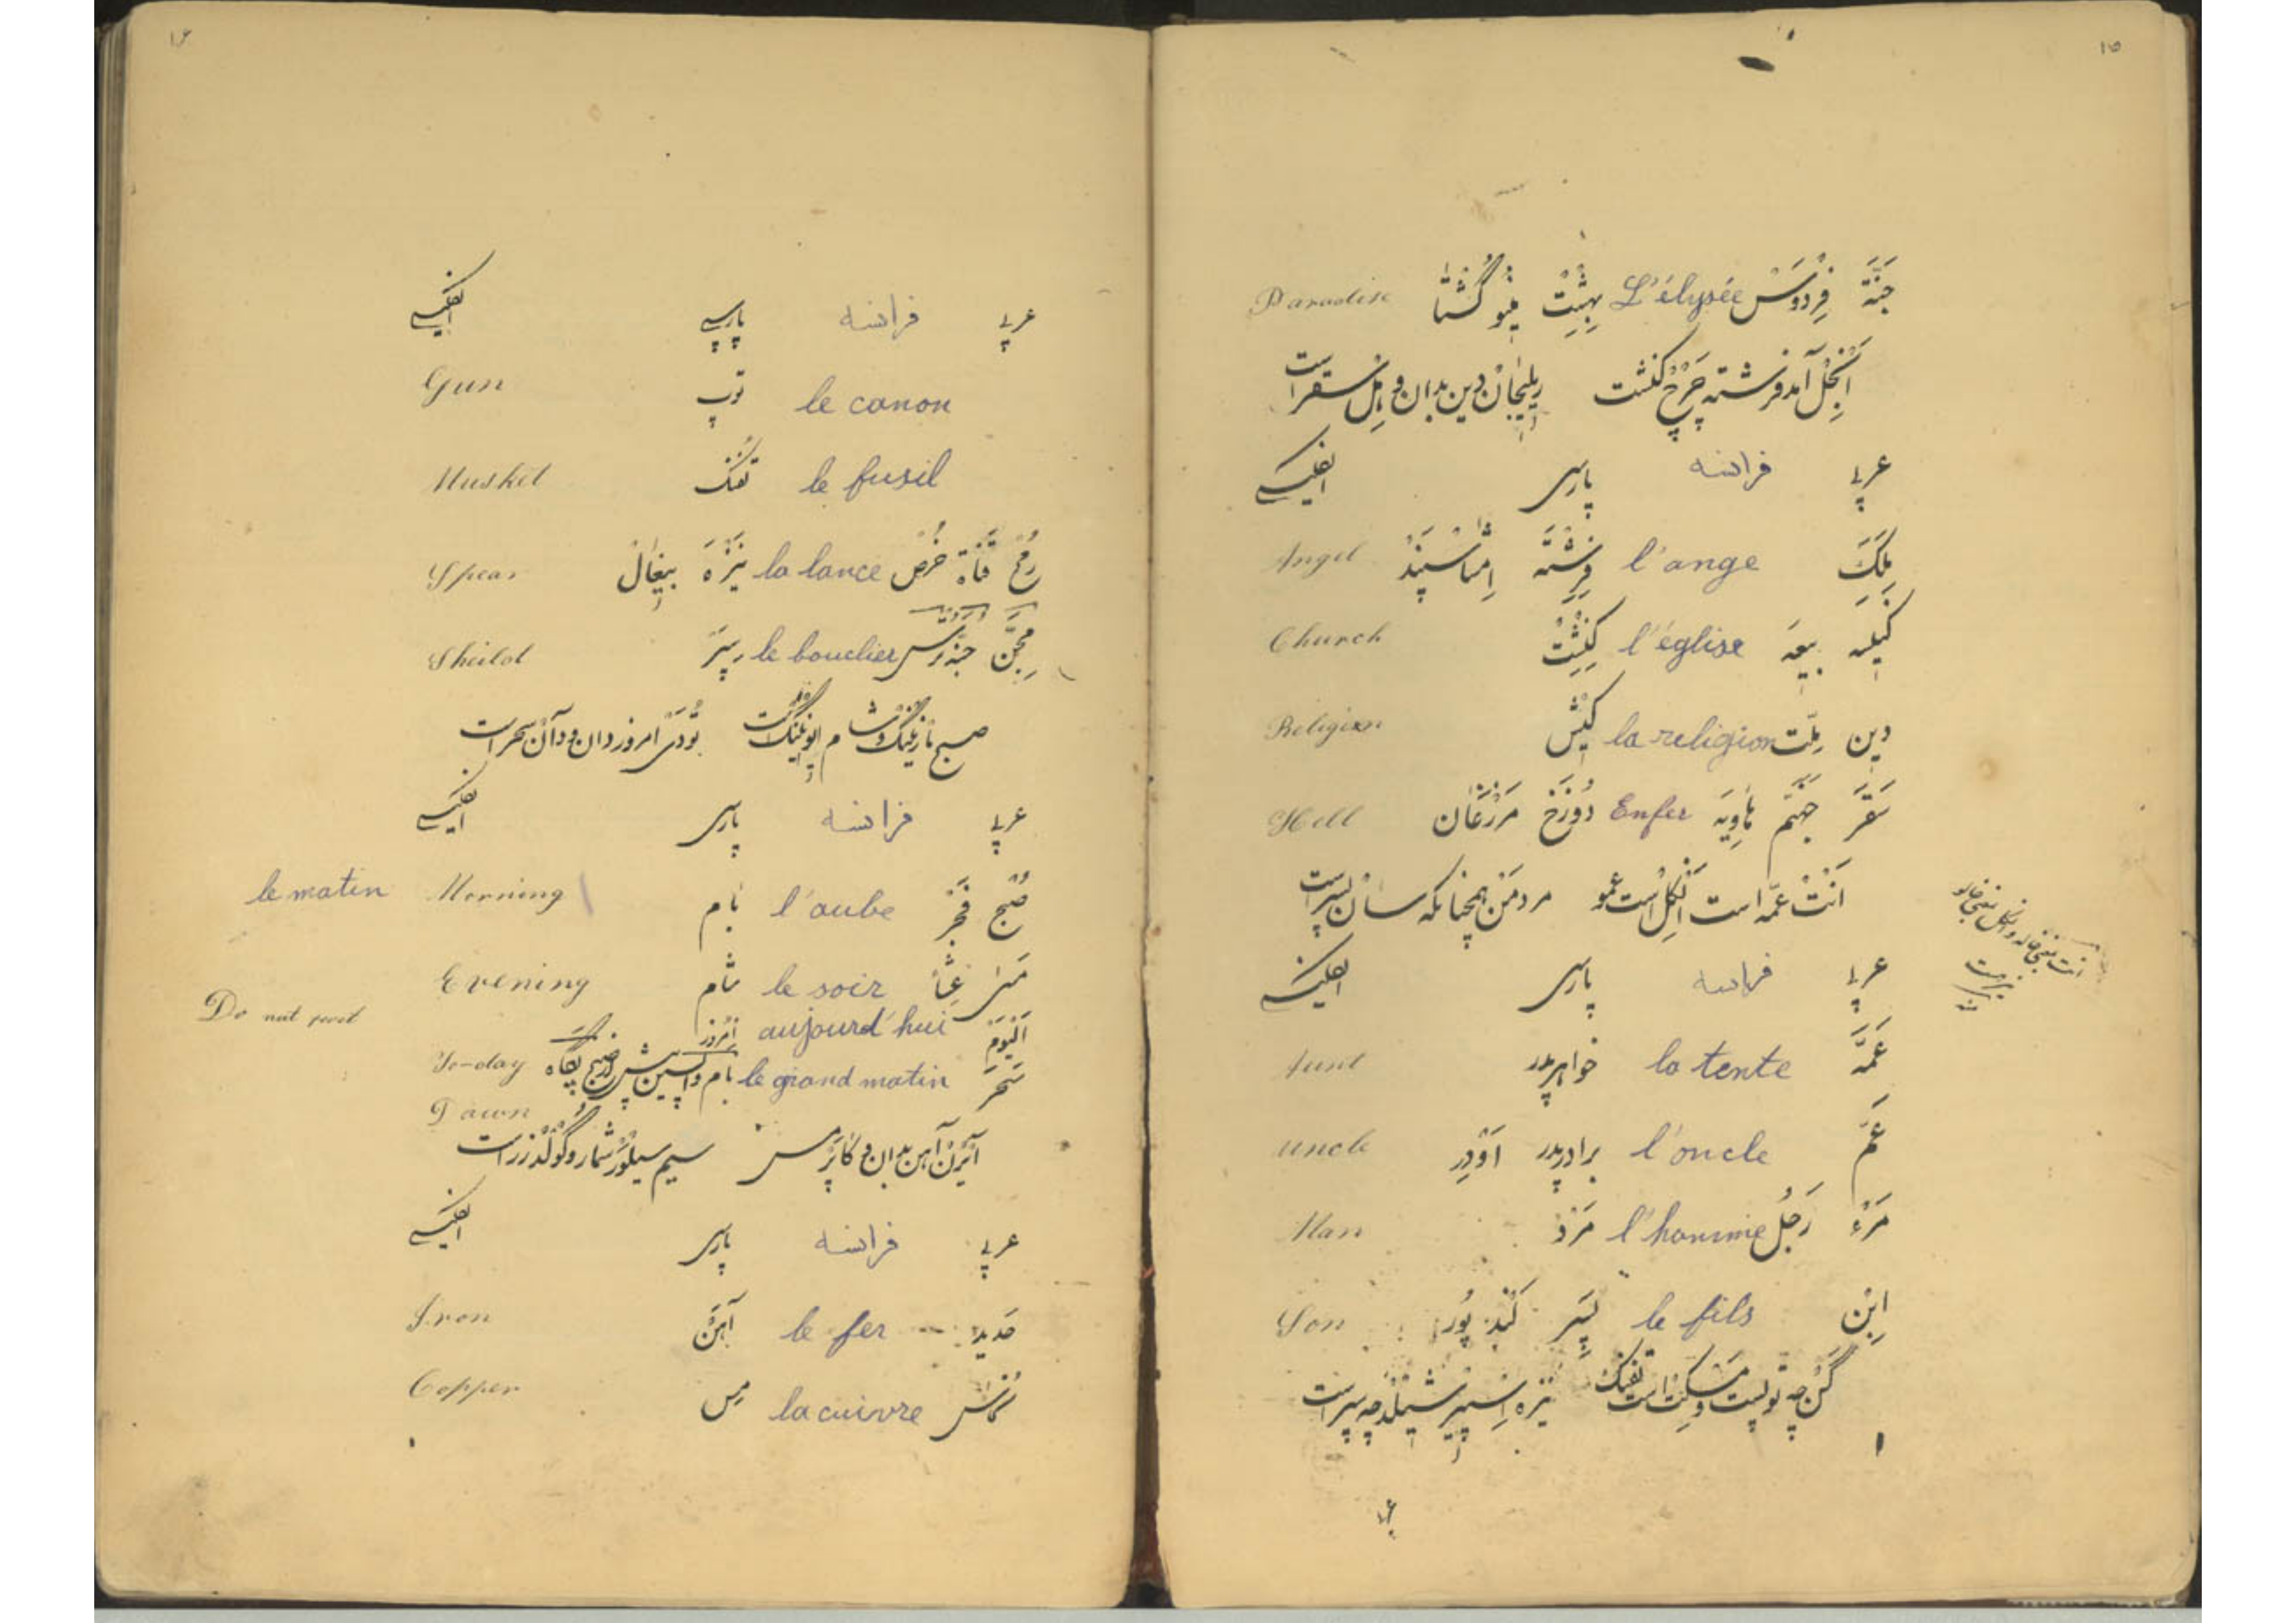 ١٥
جَنَّة فِرْدَوْسْ L'élysée بِهِشْتْ مینو گُشتا Paradise
اَنْجِلْ آمد فرشته چَرْچْ کنشت ریلیجان دین بدان و هِلْ سقر است
عربی فرانسه پارسی انگلیسی
مَلَكَ l'ange فِرِشْتَه اِمشاسْپَنْد Angel
کَنیسه بیعَه l'église کِنِشْتْ Church
دین مِلّت la religion کیْش Religion
سَقَر جَهَنَّم هاوِیَه Enfer دُوزَخْ مَرْزَغَان Hell
اَنْتْ عَمّه است اَنْکِلْ است عمو مرد مَنْ همچنانکه سان پسر است
عربی فرانسه پارسی انگلیسی
عَمَّه la tente خواهر پدر Aunt
عَمّ l'oncle برادر پدر اَوْدِر uncle
مَرْء رَجُل l'homme مَرْدْ Man
اِبْن le fils پِسَر کُنْد پُور Son
گَنْ چه توپست و مَسْکِتْ است تفنگ نیزه اِسْپیر شیلْدْ چه سپر است
١٦
عربی فرانسه پارسی انگلیسی
le canon توپ Gun
le fusil تُفَنْگ Musket
رُمْح قَنَاة خُرْص la lance نَیْزَه Spear
مِجَنّ جُنّه تُرس le bouclier سِپَر Sheild
صبح مارْنینگ و شام ایونینگ است تُودَیْ امروز دان و دآن سحر است
عربی فرانسه پارسی انگلیسی
صُبْح فَجْر l'aube بَام Morning le matin
مَسَا عِشَا le soir شَام Evening
اَلْیَوْم aujourd'hui امروز To-day Do not
سَحَر le grand matin بام واپسین پیش از صبح پگاه Dawn
آیْرَنْ آهن بدان و کاپَر مس سیم سیلْوَرْ شمار و گُولْدْ زر است
عربی فرانسه پارسی انگلیسی
حَدید le fer آهَنْ Iron
نُحاس la cuivre مِس Copper